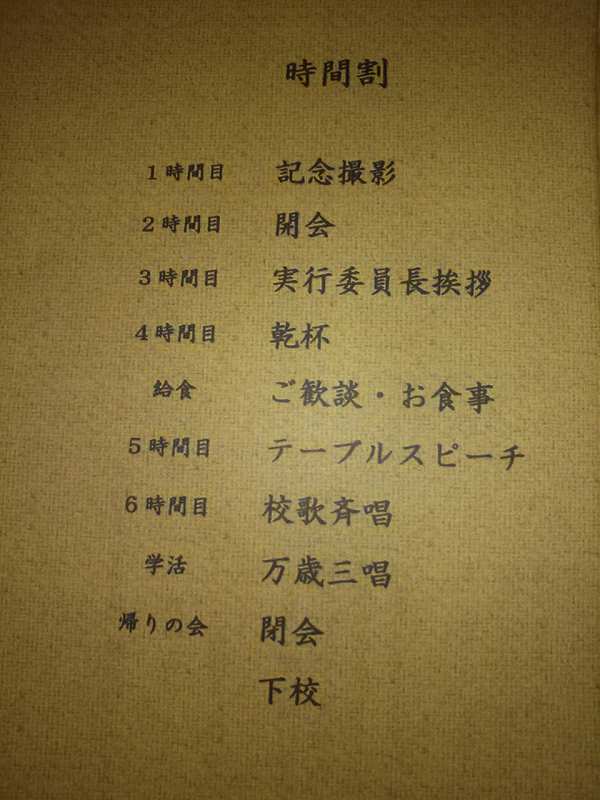 時間割
1時間目 記念撮影
2時間目 開会
3時間目 実行委員長挨拶
4時間目 乾杯
給食 ご歓談・お食事
5時間目 テーブルスピーチ
6時間目 校歌斉唱
学活 万歳三唱
帰りの会 閉会
下校